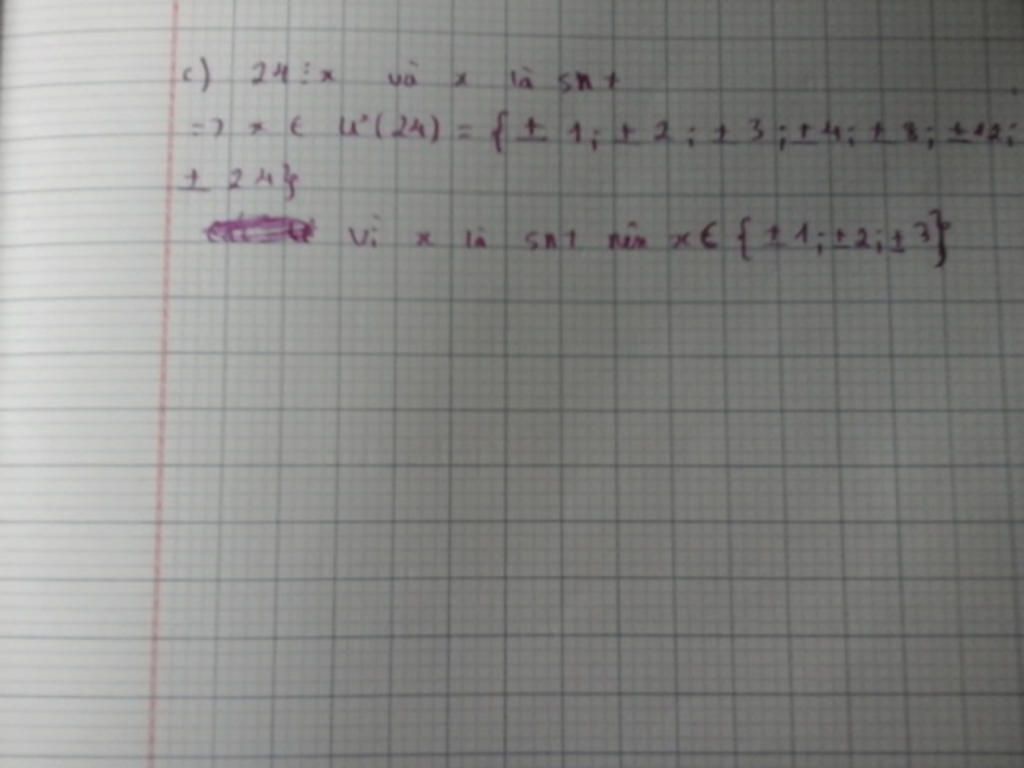 c) 24 ⋮ x và x là snt
=> x ∈ Ư(24) = { ± 1 ; ± 2 ; ± 3 ; ± 4 ; ± 8 ; ± 12 ;
± 24 }
Vì x là snt nên x ∈ { ± 1 ; ± 2 ; ± 3 }